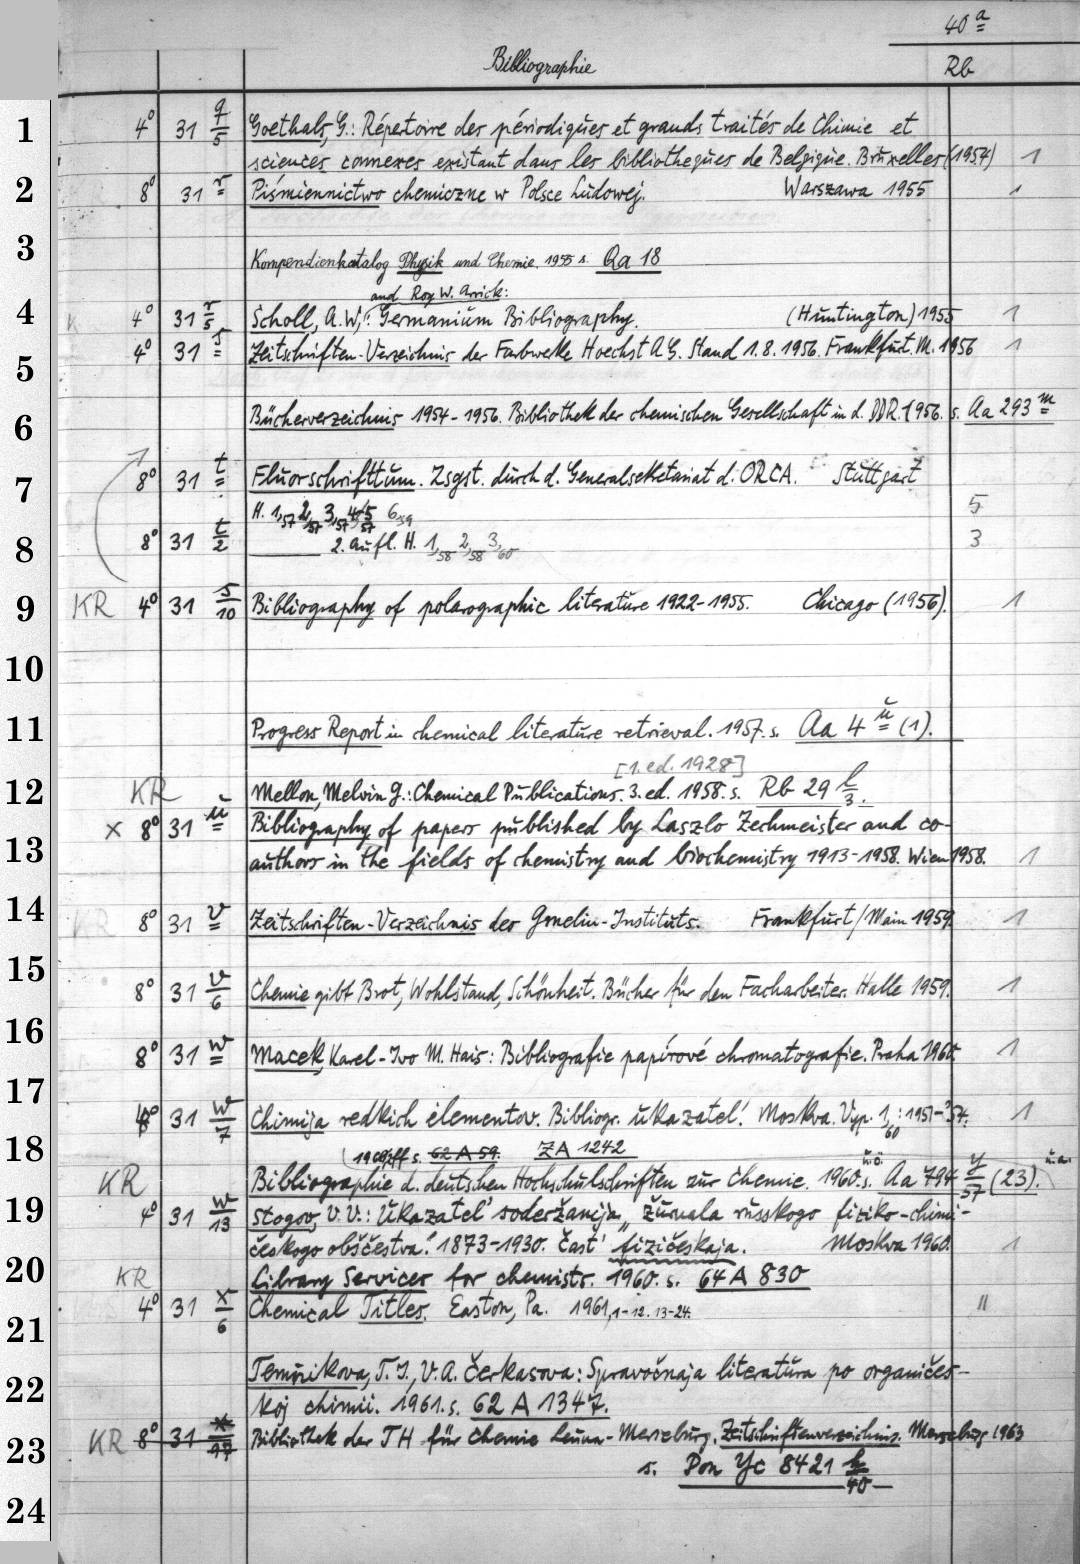 40 a
Bibliographie Rb
1 4° 31 q/5 Goethals, G.: Répertoire des périodiques et grands traités de Chimie et
sciences connexes existant dans les bibliotheques de Belgique. Bruxelles (1954) 1
2 8° 31 r Piśmiennictwo chemiczne w Polsce Ludowej. Warszawa 1955 1
3 Kompendienkatalog Physik und Chemie. 1955 s. Qa 18
and Roy W.
4 4° 31 r/5 Scholl, A.W.,: Germanium Bibliography. (Huntington) 1955 1
5 4° 31 s Zeitschriften-Verzeichnis der Farbwerke Hoechst A.G. Stand 1.8.1956. Frankfurt.M. 1956 1
6 Bücherverzeichnis 1954-1956. Bibliothek der chemischen Gesellschaft in d. DDR. 1956. s. Aa 293 m
7 8° 31 t Fluorschrifttum. Zsgst. durch d. Generalsekretariat d. ORCA. Stuttgart
H. 1,57 2,57 3,57 4,57 5,57 6,59 5
8 8° 31 t/2 2. Aufl. H. 1,58 2,58 3,60 3
9 KR 4° 31 s/10 Bibliography of polarographic literature 1922-1955. Chicago (1956). 1
10
11 Progress Report in chemical literature retrieval. 1957. s. Aa 4 u (1).
[1. ed. 1928]
12 KR Mellon, Melvin G.: Chemical Publications. 3. ed. 1958. s. Rb 29 l/3.
x 8° 31 u Bibliography of papers published by Laszlo Zechmeister and co-
13 authors in the fields of chemistry and biochemistry 1913-1958. Wien 1958. 1
14 KR 8° 31 v Zeitschriften-Verzeichnis des Gmelin-Instituts. Frankfurt/Main 1959. 1
15 8° 31 v/6 Chemie gibt Brot, Wohlstand, Schönheit. Bücher für den Facharbeiter. Halle 1959. 1
16 8° 31 w Macek, Karel - Ivo M. Hais: Bibliografie papírové chromatografie. Praha 1960. 1
17 4° 31 w/7 Chimija redkich elementov. Bibliogr. ukazatel'. Moskva. Vyp. 1,60: 1951-'54. 1
18 1960ff s. 62 A 59. ZA 1242
KR Bibliographie d. deutschen Hochschulschriften zur Chemie. 1960. s. u.ö. Aa 794 y/57 (23). u.a.
19 4° 31 w/13 Stogov, V.V.: Ukazatel' soderžanija "Žurnala russkogo fiziko-chimi-
českogo obščestva." 1873-1930. Čast' fizičeskaja. Moskva 1960. 1
20 KR Library Services for chemists. 1960. s. 64 A 830
4° 31 x/6 Chemical Titles. Easton, Pa. 1961, 1-12. 13-24. "
21
Temnikova, T.I., V.A. Čerkasova: Spravočnaja literatura po organičes-
22 koj chimii. 1961. s. 62 A 1347.
23 KR 8° 31 x/17 Bibliothek der TH für Chemie Leuna-Merseburg. Zeitschriftenverzeichnis. Merseburg 1963
s. Pon Yc 8421 h/40
24